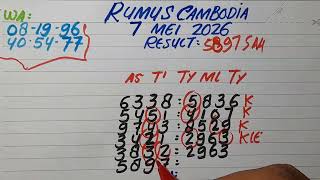 WA:
08-19-96
40-54-77
RUMUS CAMBODIA
7 MEI 2026
RESULT: 5897 SAH
AS TI TY ML TY
6338:5836 K
5451:4167 K
9793:9529 K
3421:2963 KIE
3832:2963
5897: